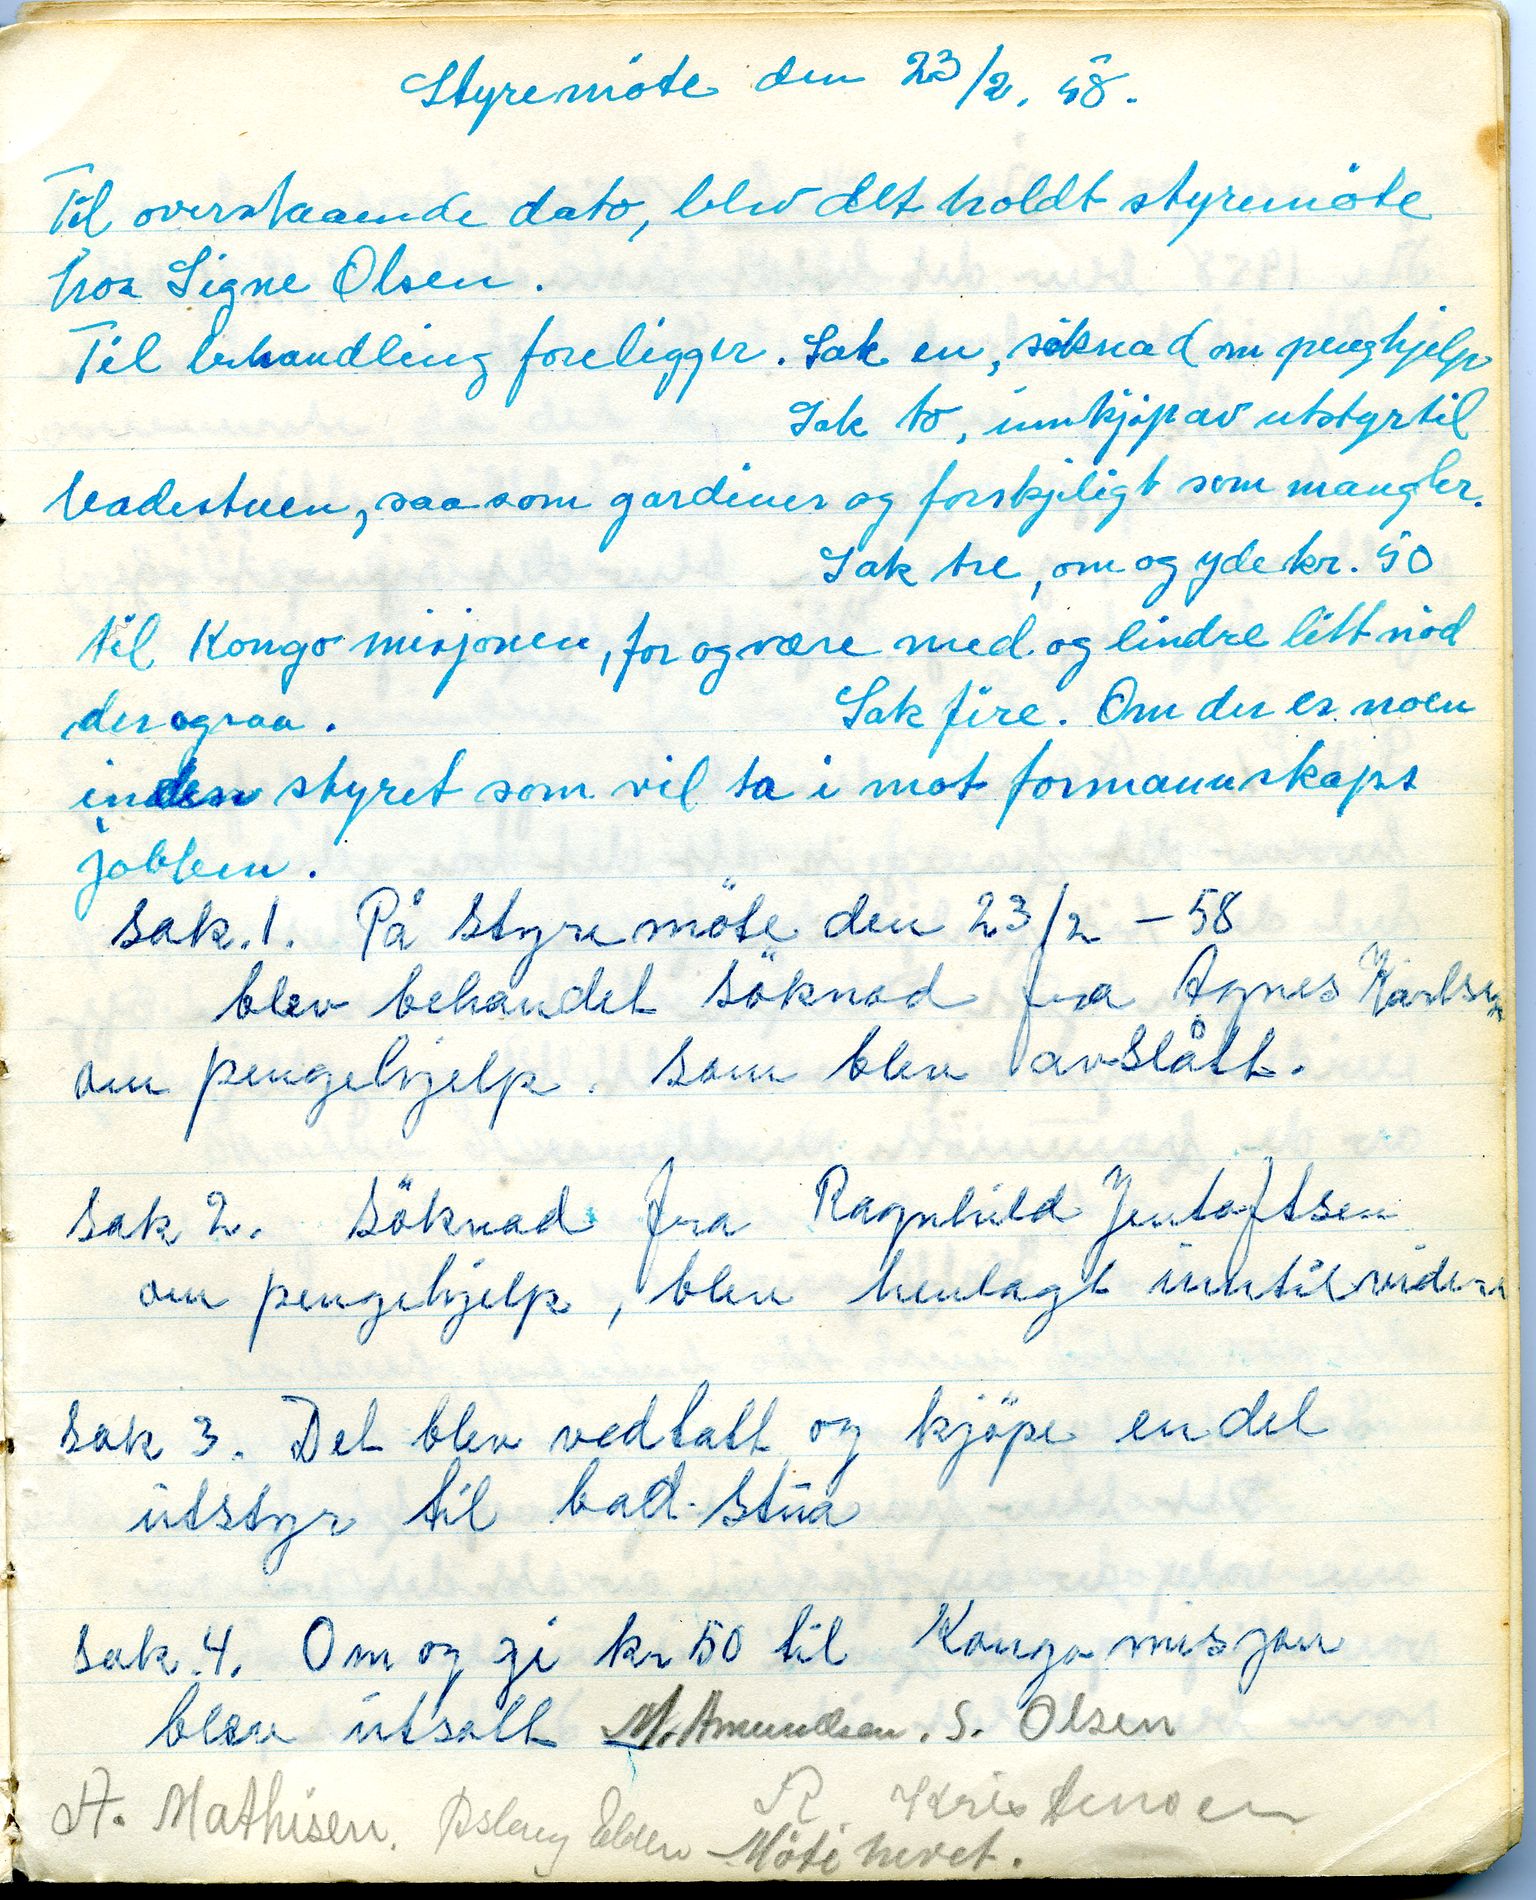 Styremöte den 23/2. 58.
Til overstaaende dato, blev det holdt styremöte
hos Signe Olsen.
Til behandling foreligger. Sak en, söknad om penghjelp
Sak to, innkjöp av utstyr til
badestuen, saa som gardiner og forskjeligt som mangler.
Sak tre, om og yde kr. 50
til Kongo misjonen, for og være med og lindre litt nöd
der ogsaa. Sak fire. Om der er noen
inden styret som vil ta i mot formannskaps
jobben.
Sak.1. På Styremöte den 23/2 - 58
blev behandel Söknad fra Agnes Karlsen
om pengehjelp. Som blev avslått.
Sak 2. Söknad fra Ragnhild Jentoftsen
om pengehjelp, blev henlagt inntil videre
Sak 3. Det blev vedtatt og kjöpe en del
utstyr til bad-stua
Sak.4. Om og gi kr 50 til Kongo misjon
blev utsatt M. Amundsen. S. Olsen
A. Mathisen. Aslaug Elden R Kristensen
Möte hevet.